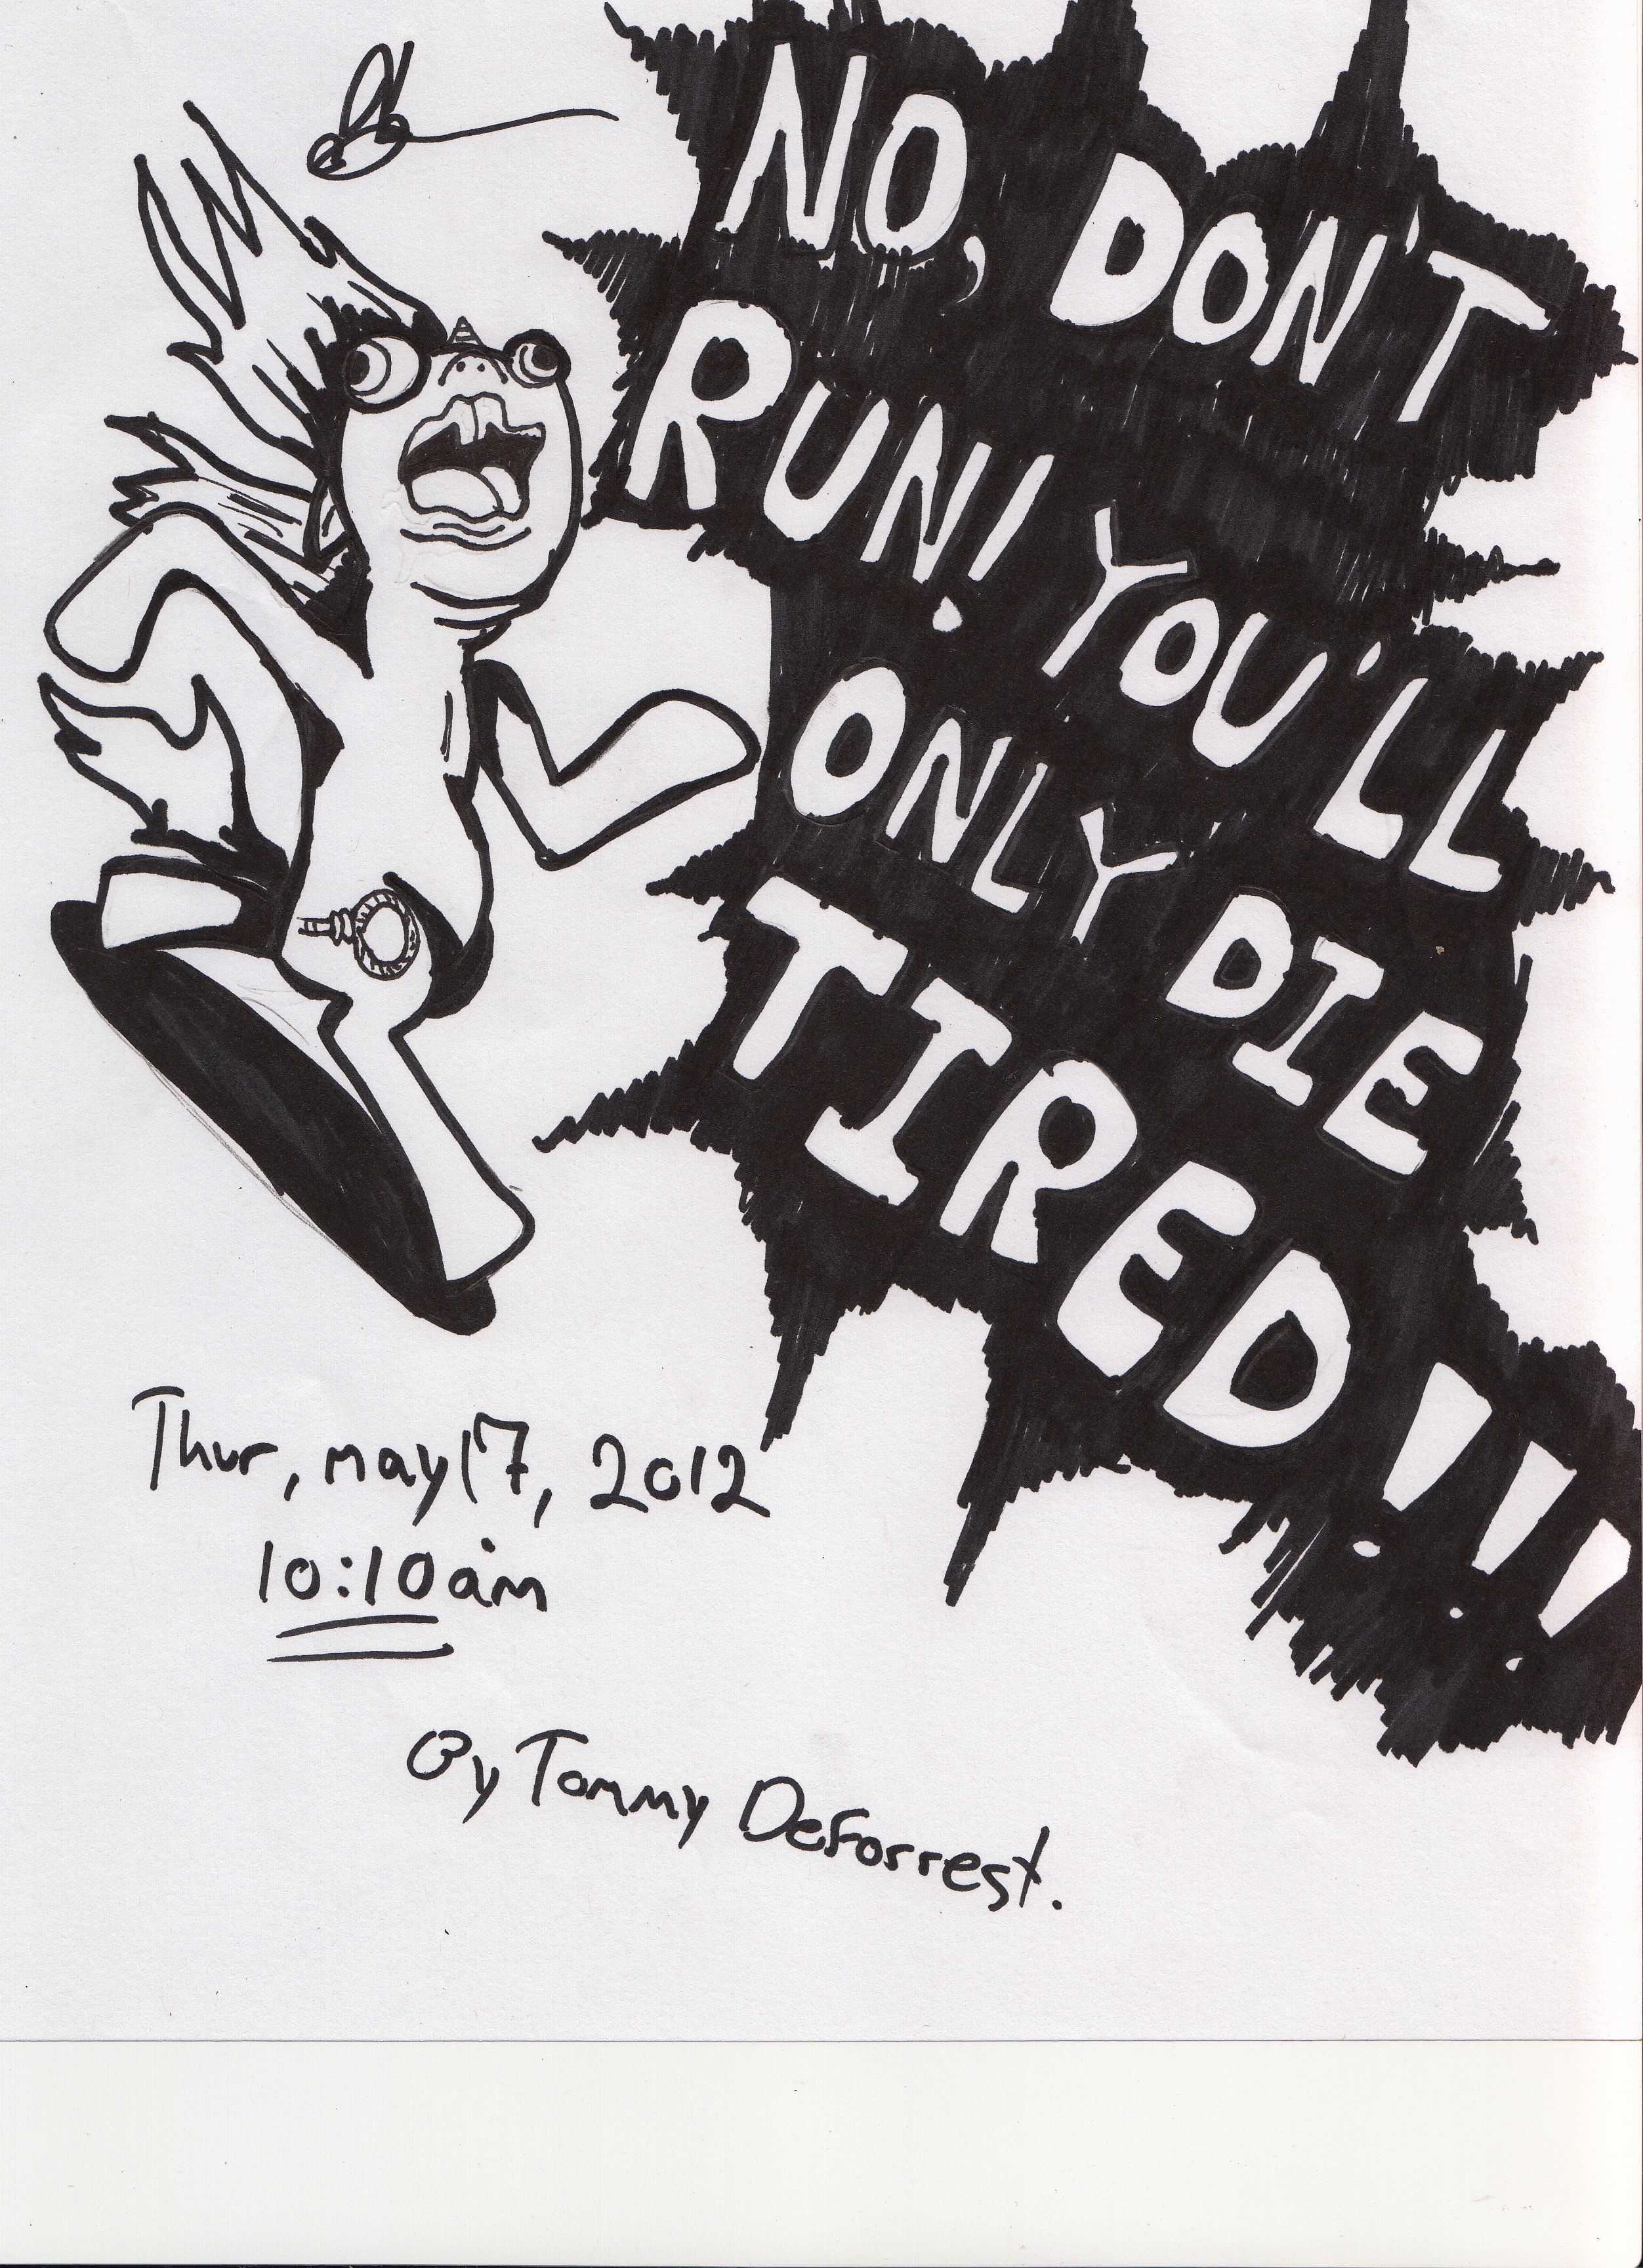 NO, DON'T
RUN! YOU'LL
ONLY DIE
TIRED!!!
Thur, may 17, 2012
10:10am
By Tommy Deforrest.